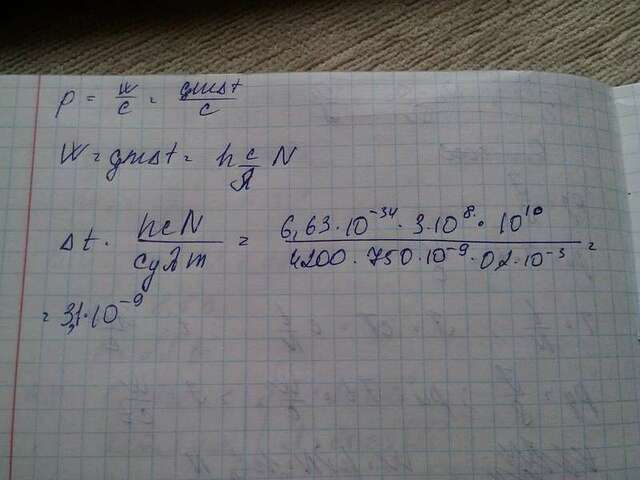 p = W/c = cmΔt/c
W = cmΔt = h c/λ N
Δt = hcN/cλm = 6,63·10⁻³⁴·3·10⁸·10¹⁰/4200·750·10⁻⁹·0,2·10⁻³ =
= 3,1·10⁻⁹